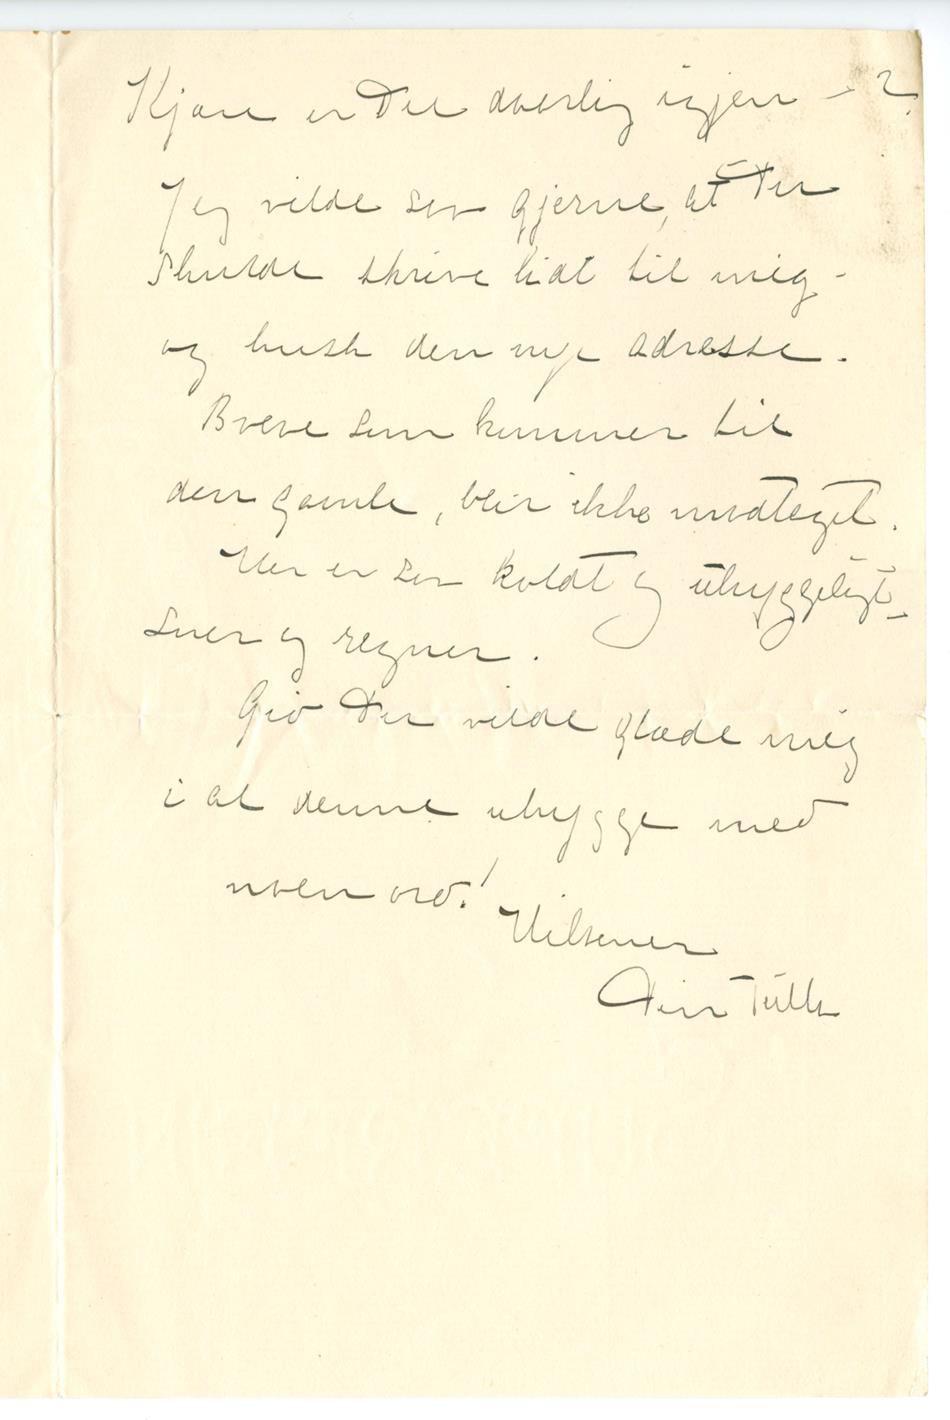 Kjære er De dårlig igjen – ?
Jeg vilde så gjerne, at De
skulde skrive lidt til mig –
og husk den nye adresse.
Breve som kommer til
den gamle, blir ikke modtaget.
Her er så koldt og uhyggeligt –
sner og regner.
Giv De vilde glæde mig
i al denne uhygge med
noen ord!
Hilsener
Din Tulla